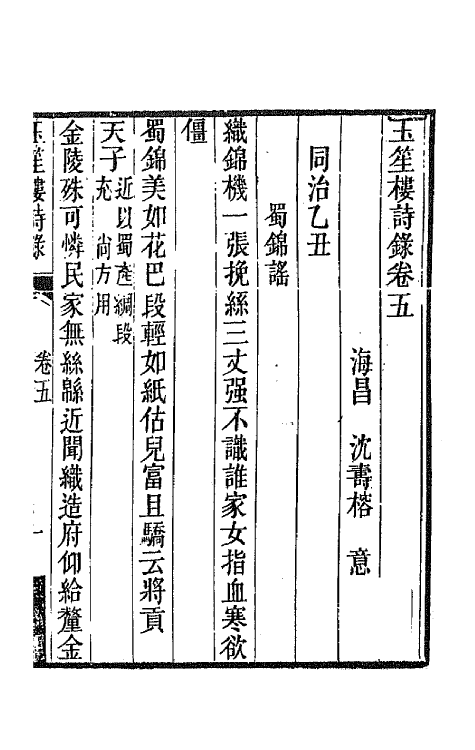 玉笙樓詩錄卷五
海昌 沈壽榕 意
同治乙丑
蜀錦謠
織錦機一張挽絲三丈强不識誰家女指血寒欲
僵
蜀錦美如花巴段輕如紙估兒富且驕云將貢
天子近以蜀產綢段充尚方用
金陵殊可憐民家無絲緜近聞織造府仰給釐金
玉笙樓詩錄 卷五 一